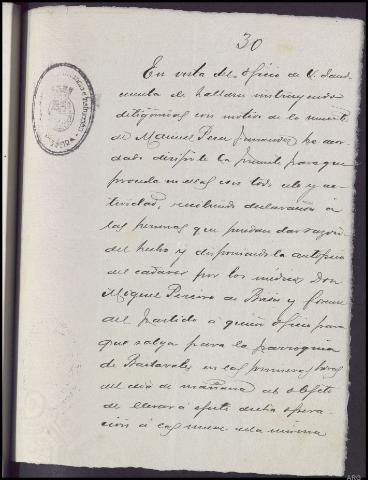 30
En vista del oficio de V. dando
cuenta de hallarse instruyendo
diligencias con motivo de la muerte
de Manuel Perez Fernandez he acor-
dado dirigirle la presente para que
proceda en ellas con todo celo y ac-
tividad, recibiendo declaración á
las personas que puedan dar razon
del hecho y disponiendo la autopsia
del cadaver por los médicos Don
Miguel Pereiro de Brión y forense
del Partido á quien oficio para
que salga para la parroquia
de Bastavales en las primeras horas
del dia de mañana al objeto
de llevar a efecto dicha opera-
ción á las nueve de la misma
ARG